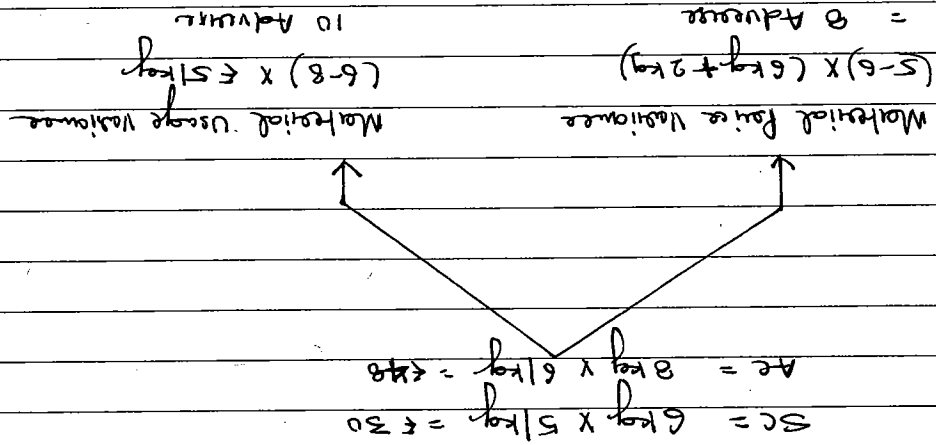 SC = 6kg x 5/kg = ₹30
AC = 8kg x 6/kg = ₹48
Material Price Variance
(5-6) x (6kg + 2kg)
= 8 Adverse
Material Usage Variance
(6-8) x ₹5/kg
10 Adverse